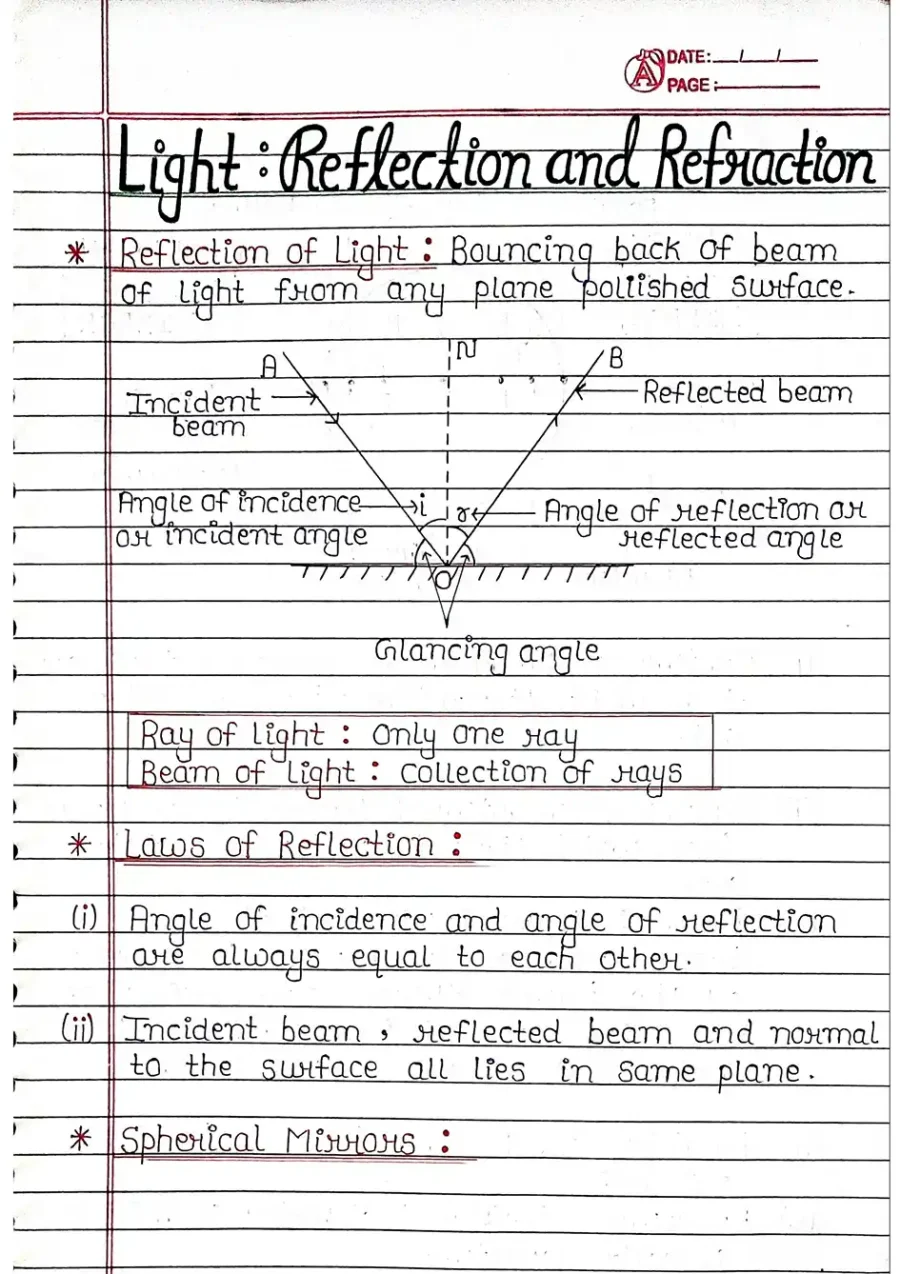 DATE: __/__/__
PAGE:
Light : Reflection and Refraction
* Reflection of Light : Bouncing back of beam
of light from any plane poltished surface.
N
A
B
Incident
beam
Reflected beam
Angle of incidence
or incident angle
i
r
Angle of reflection or
reflected angle
O
Glancing angle
Ray of light : only one ray
Beam of light : collection of rays
* Laws of Reflection :
(i) Angle of incidence and angle of reflection
are always equal to each other.
(ii) Incident beam , reflected beam and normal
to the surface all lies in same plane.
* Spherical Mirrors :